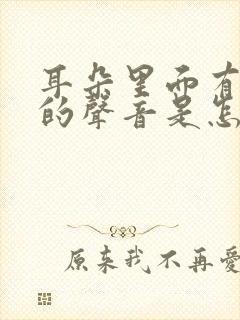 耳朵里面有
的聲音是怎
原来我不再愛